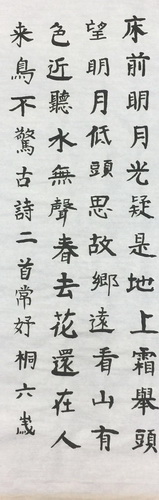 床前明月光疑是地上霜舉頭
望明月低頭思故鄉遠看山有
色近聽水無聲春去花還在人
来鳥不驚古詩二首常好桐六歲